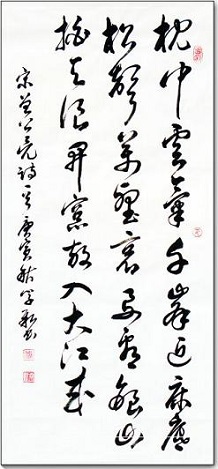 枕中雲氣千峯近床底
松聲萬壑哀要看銀山
拍天浪開窗放入大江來
宋曾公亮詩庚寅秋